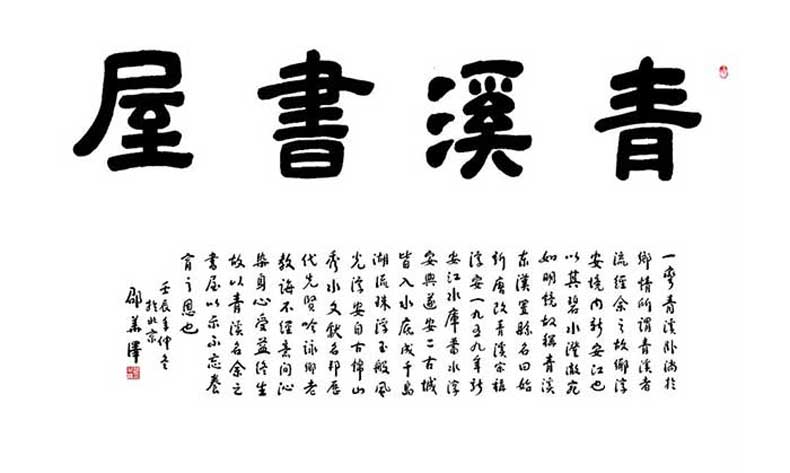 青溪書屋
一彎青溪卧淌於
鄉情所謂青溪者
流經余之故鄉淳
安境内新安江也
以其碧水澄澈宛
如明镜故稱青溪
東漢置縣名曰始
新唐改青溪宋稱
淳安一九五九年新
安江水庫蓄水淳
安與遂安二古城
皆入水底成千島
湖流珠浮玉般風
光淳安自古錦山
秀水文獻名邦歷
代先賢吟詠鄉老
教誨不經意间沁
染身心受益終生
故以青溪名余之
書屋以示不忘養
育之恩也
壬辰年仲冬
於北京
邵華澤